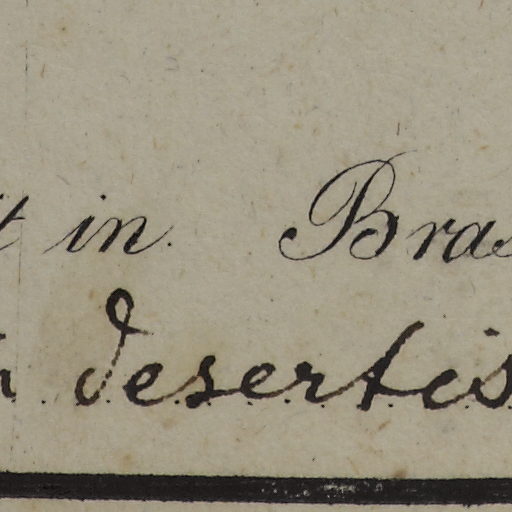 t in Bras
desertis